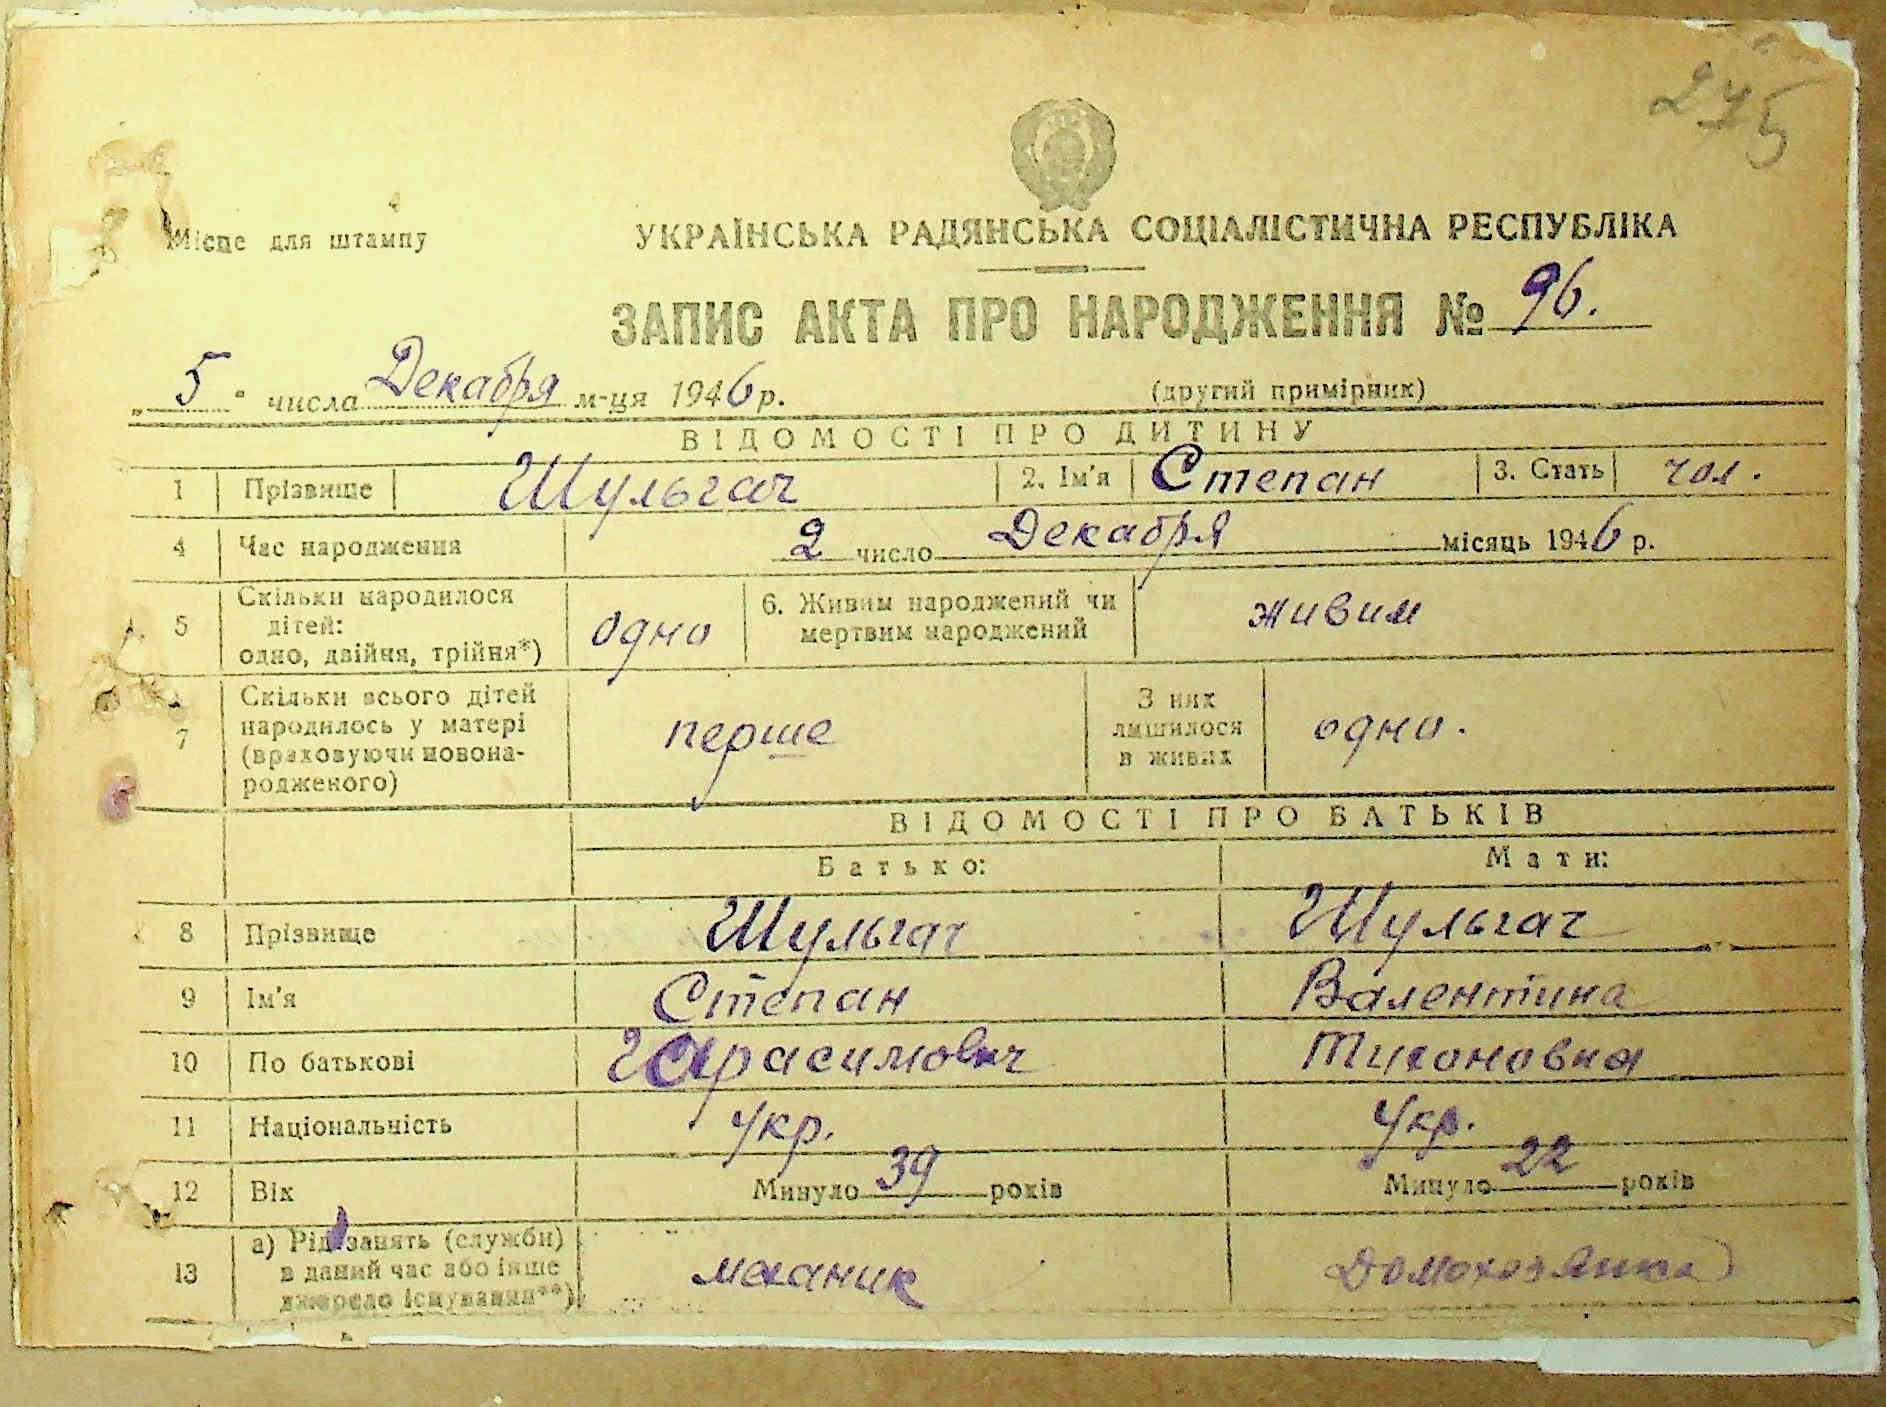 275
Місце для штампу
УКРАЇНСЬКА РАДЯНСЬКА СОЦІАЛІСТИЧНА РЕСПУБЛІКА
ЗАПИС АКТА ПРО НАРОДЖЕННЯ № 96.
„5" числа Декабря м-ця 1946 р. (другий примірник)
ВІДОМОСТІ ПРО ДИТИНУ
1 Прізвище Шульгач 2. Ім'я Степан 3. Стать чол.
4 Час народження 2 число Декабря місяць 1946 р.
5 Скільки народилося дітей: одно, двійня, трійня*) одно 6. Живим народжений чи мертвим народжений живим
7 Скільки всього дітей народилось у матері (враховуючи новонародженого) перше З них лишилося в живих одно.
ВІДОМОСТІ ПРО БАТЬКІВ
Батько: Мати:
8 Прізвище Шульгач Шульгач
9 Ім'я Степан Валентина
10 По батькові Гарасимович Тихоновна
11 Національність Укр. Укр.
12 Вік Минуло 39 років Минуло 22 років
13 а) Рід занять (служби) в даний час або інше джерело існування**) механик Домохозяика